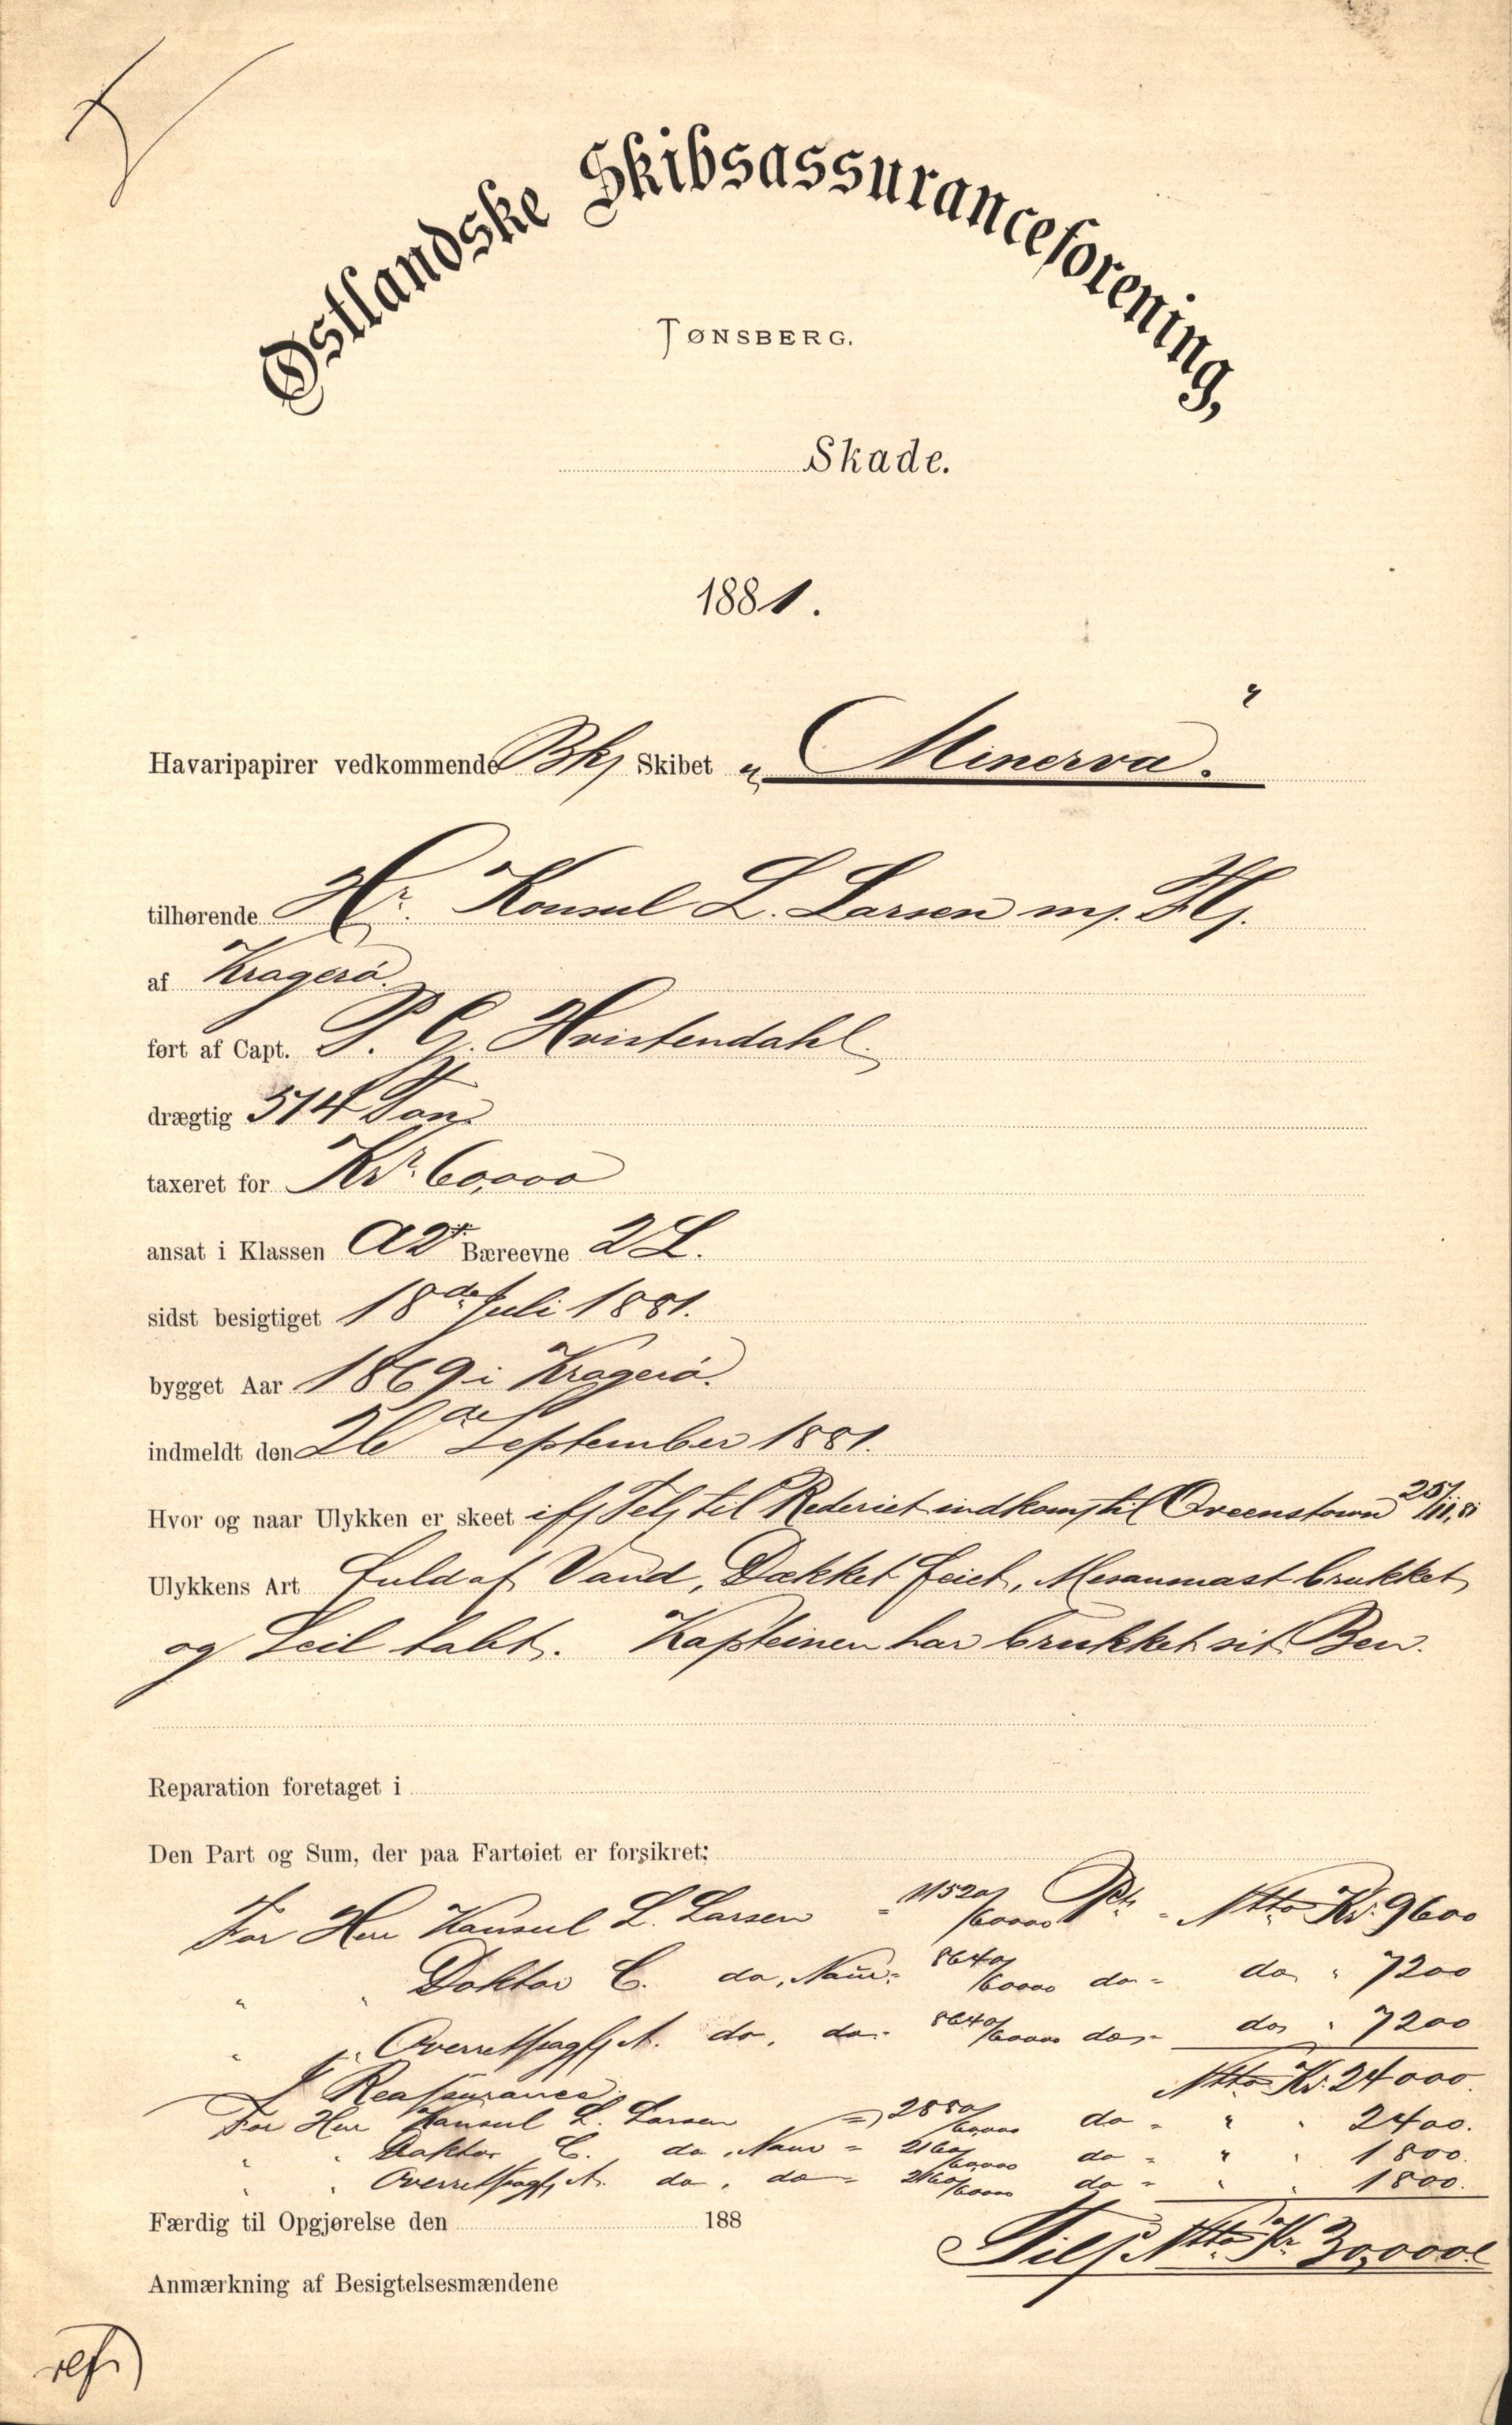 Østlandske Skibsassuranceforening,
TØNSBERG.
Skade.
1881.
Havaripapirer vedkommende Bk/ Skibet „Minerva."
tilhørende Hr. Konsul L. Larsen m/. Fl/.
af Kragerö.
ført af Capt. P. G. Hvistendahl.
drægtig 514 Ton.
taxeret for Kr. 60,000
ansat i Klassen A2* Bæreevne 2 L.
sidst besigtiget 18de Juli 1881.
bygget Aar 1869 i Kragerö.
indmeldt den 26de September 1881.
Hvor og naar Ulykken er skeet ifl Tel/ til Rederiet indkom/ til Qveenstown 25/11,81
Ulykkens Art fuld af Vand, Dækket feiet, Mesanmast brukket,
og Seil tabt. Kapteinen har brukket sit Ben.
Reparation foretaget i
Den Part og Sum, der paa Fartøiet er forsikret:
For Herr Konsul L. Larsen = 11520/60000 Pt. = Ntto Kr. 9600
" " Doktor C. do, Navn = 8640/60000 do = do " 7200
" " Overretssagf. A. do, do = 8640/60000 do = do " 7200
Ntto Kr. 24000.
I Reassurance.
For Herr Konsul L. Larsen = 2880/60000 do = " " 2400.
" " Doktor C. do, Navn = 2160/60000 do = " " 1800.
" " Overretssagf. A. do, do = 2160/60000 do = " " 1800.
Færdig til Opgjørelse den 188
Tils. Ntto Kr 30,000
Anmærkning af Besigtelsesmændene
ref)